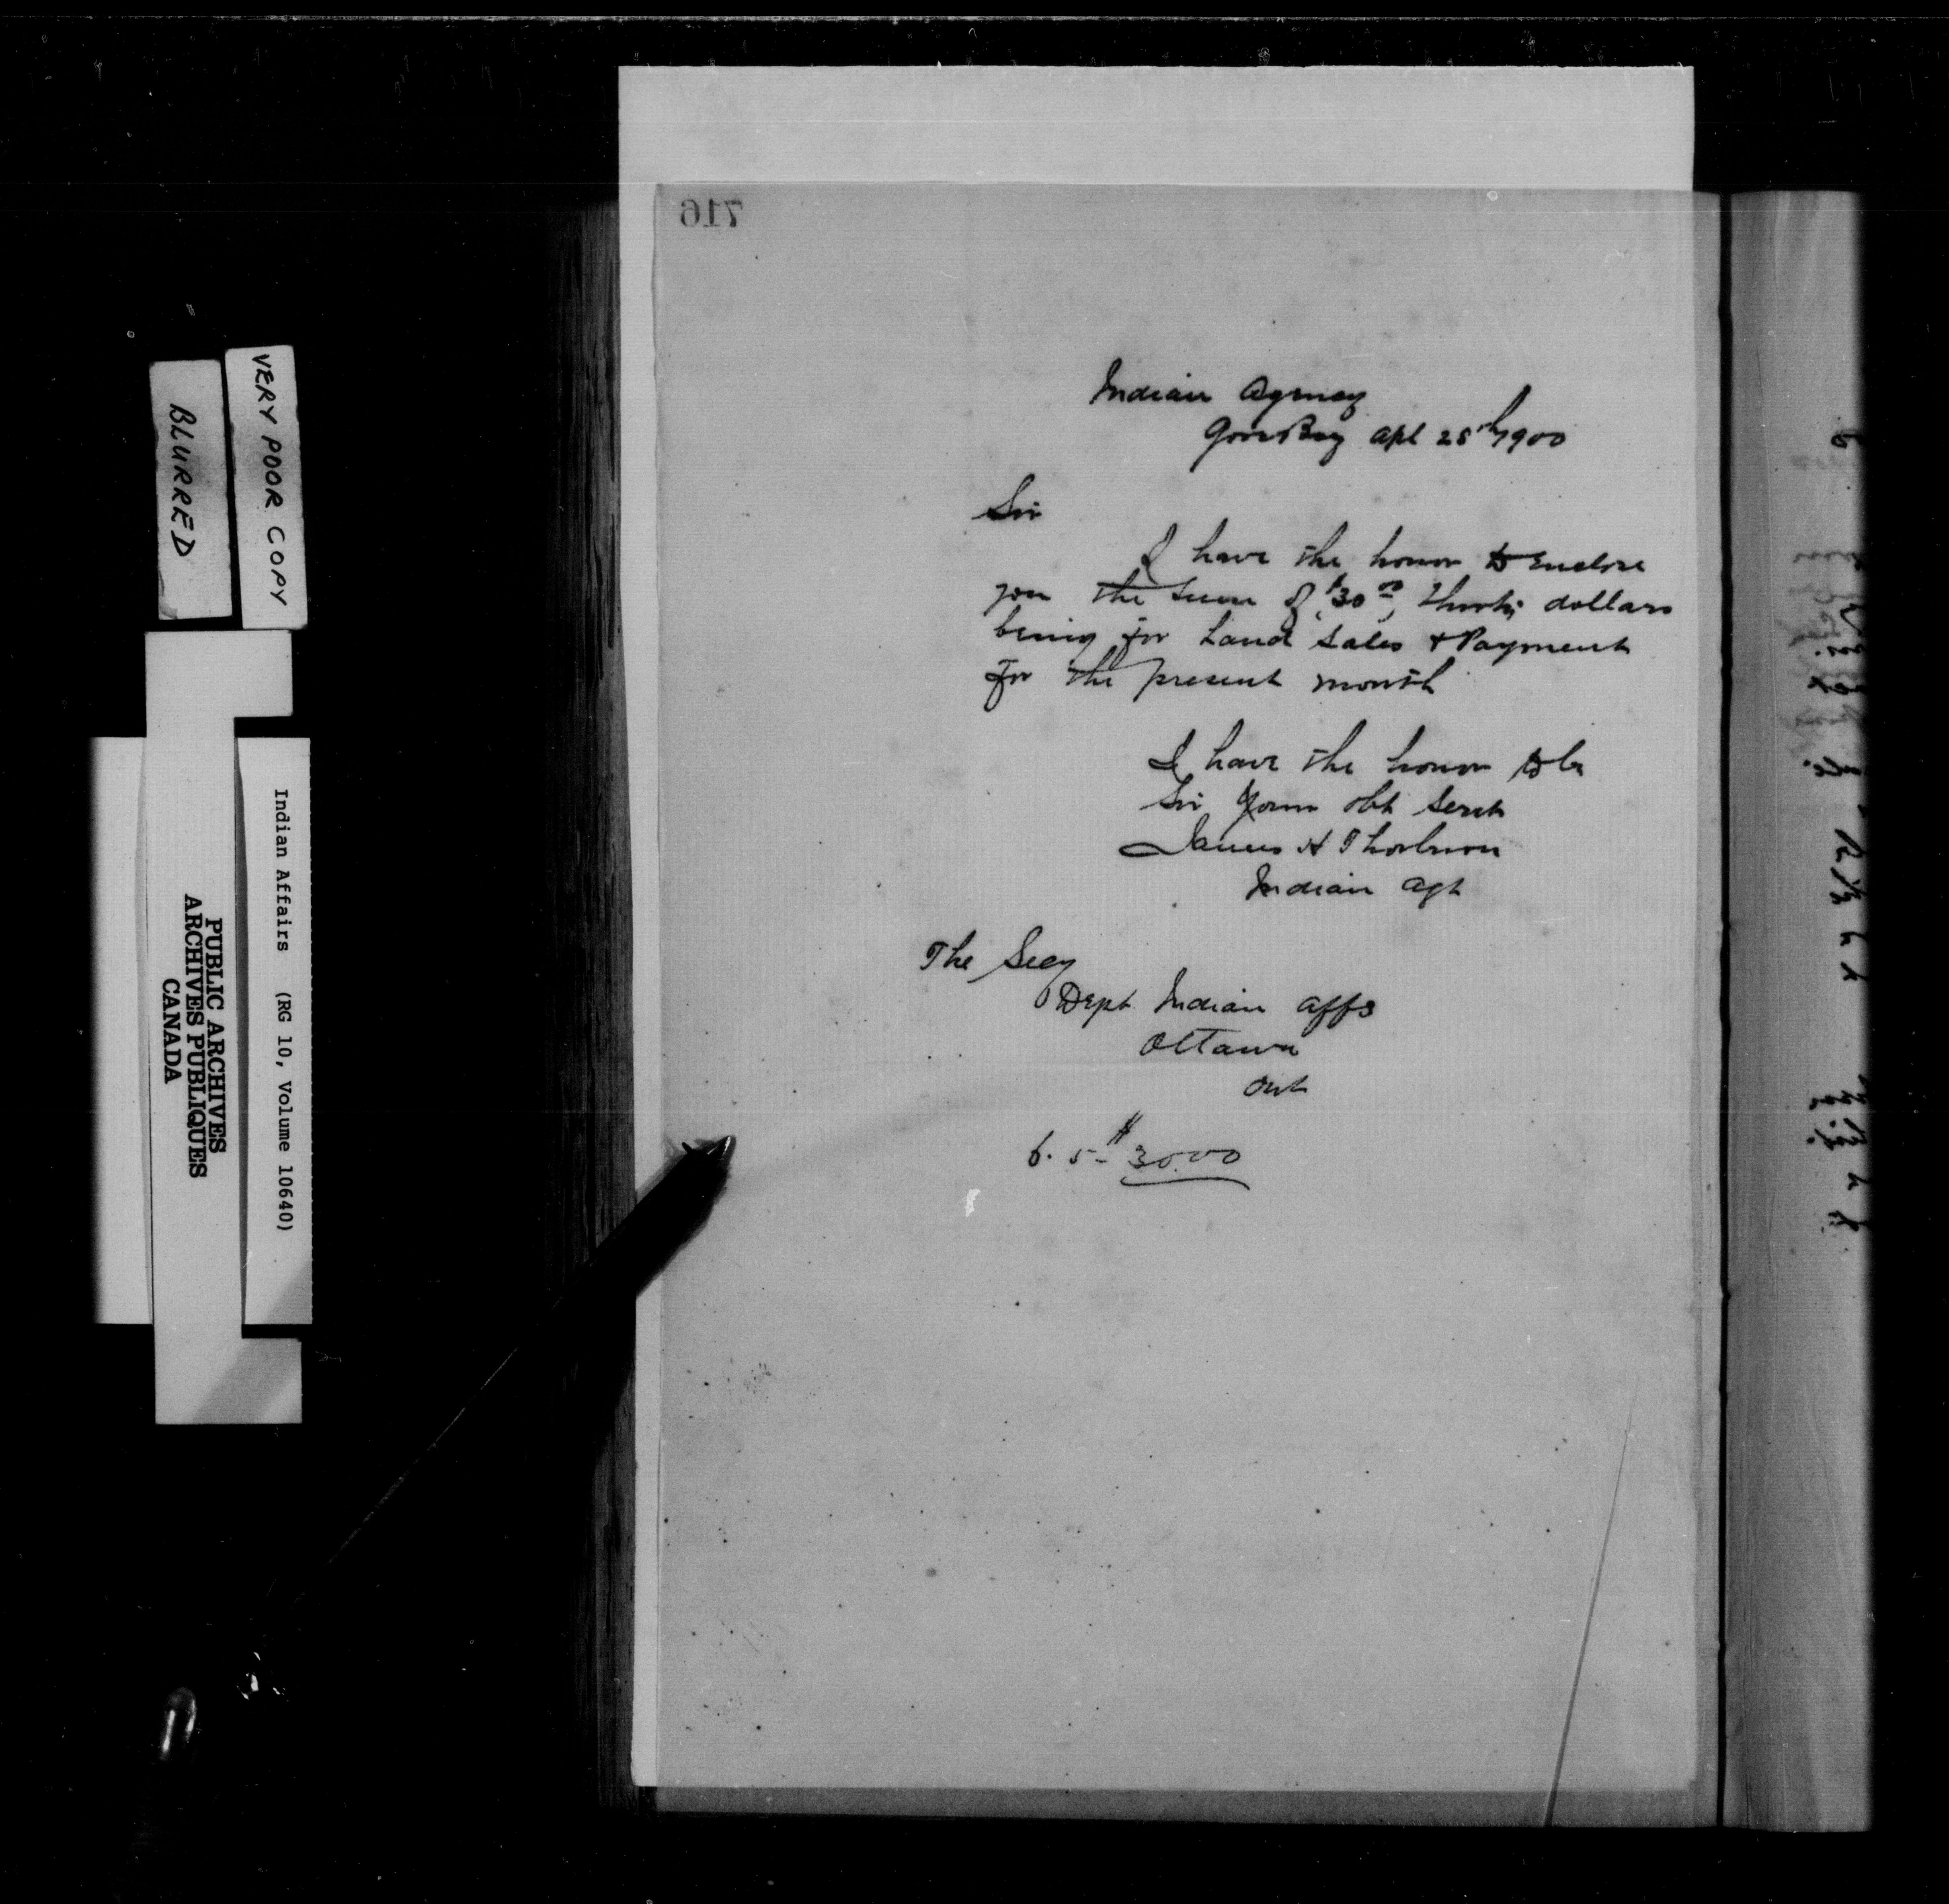 716
Indian Agency
Gore Bay Apl 28th 1900
Sir
I have the honor to enclose
you the sum of $30.00, thirty dollars
being for Land Sales & Payment
for the present month
I have the honor to be
Sir your obt Servt
James H Thorburn
Indian Agt
The Secy
Dept Indian Affs
Ottawa
Ont
$30.00
VERY POOR COPY
BLURRED
Indian Affairs (RG 10, Volume 10640)
PUBLIC ARCHIVES
ARCHIVES PUBLIQUES
CANADA